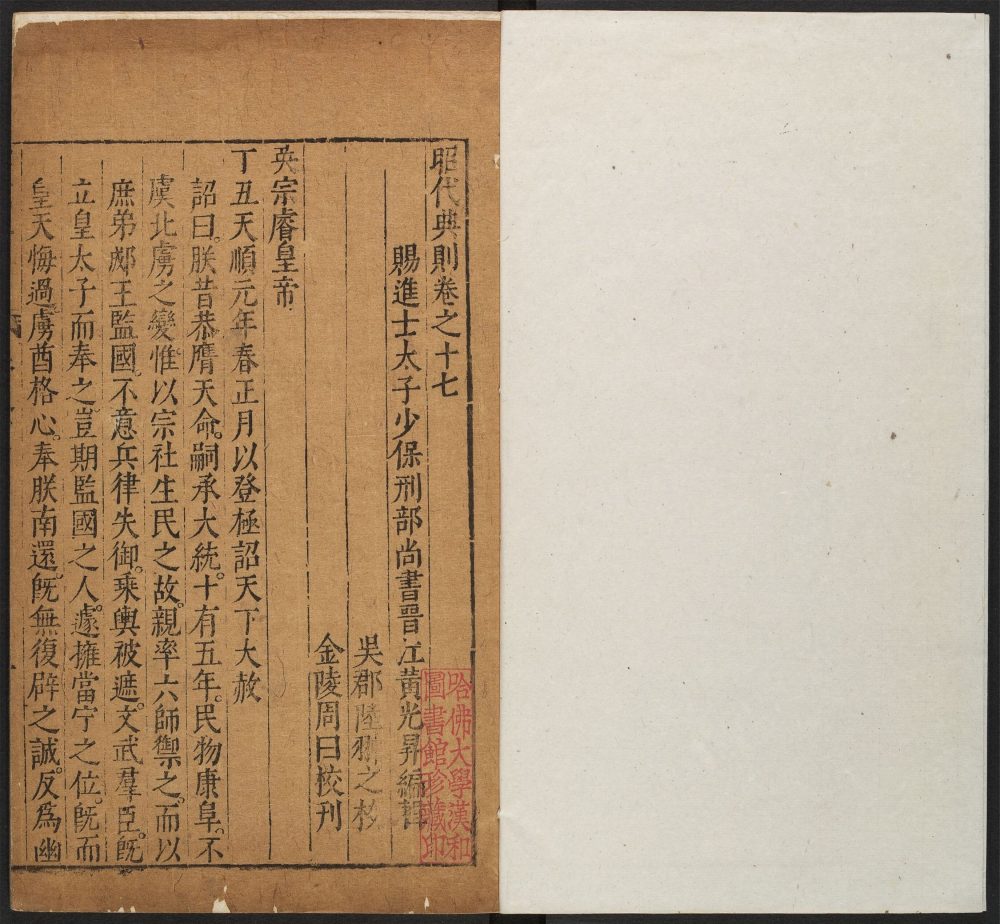 昭代典則卷之十七
賜進士太子少保刑部尚書晉江黃光昇編輯
吳郡陸翀之校
金陵周曰校刊
英宗睿皇帝
丁丑天順元年春正月以登極詔天下大赦
詔曰。朕昔恭膺天命。嗣承大統。十有五年。民物康阜。不
虞北虜之變。惟以宗社生民之故。親率六師禦之。而以
庶弟郕王監國。不意兵律失御。乘輿被遮。文武羣臣。旣
立皇太子而奉之。豈期監國之人。遽擁當宁之位。旣而
皇天悔過。虜酋格心。奉朕南還。旣無復辟之誠。反爲幽
哈佛大學漢和
圖書館珍藏印